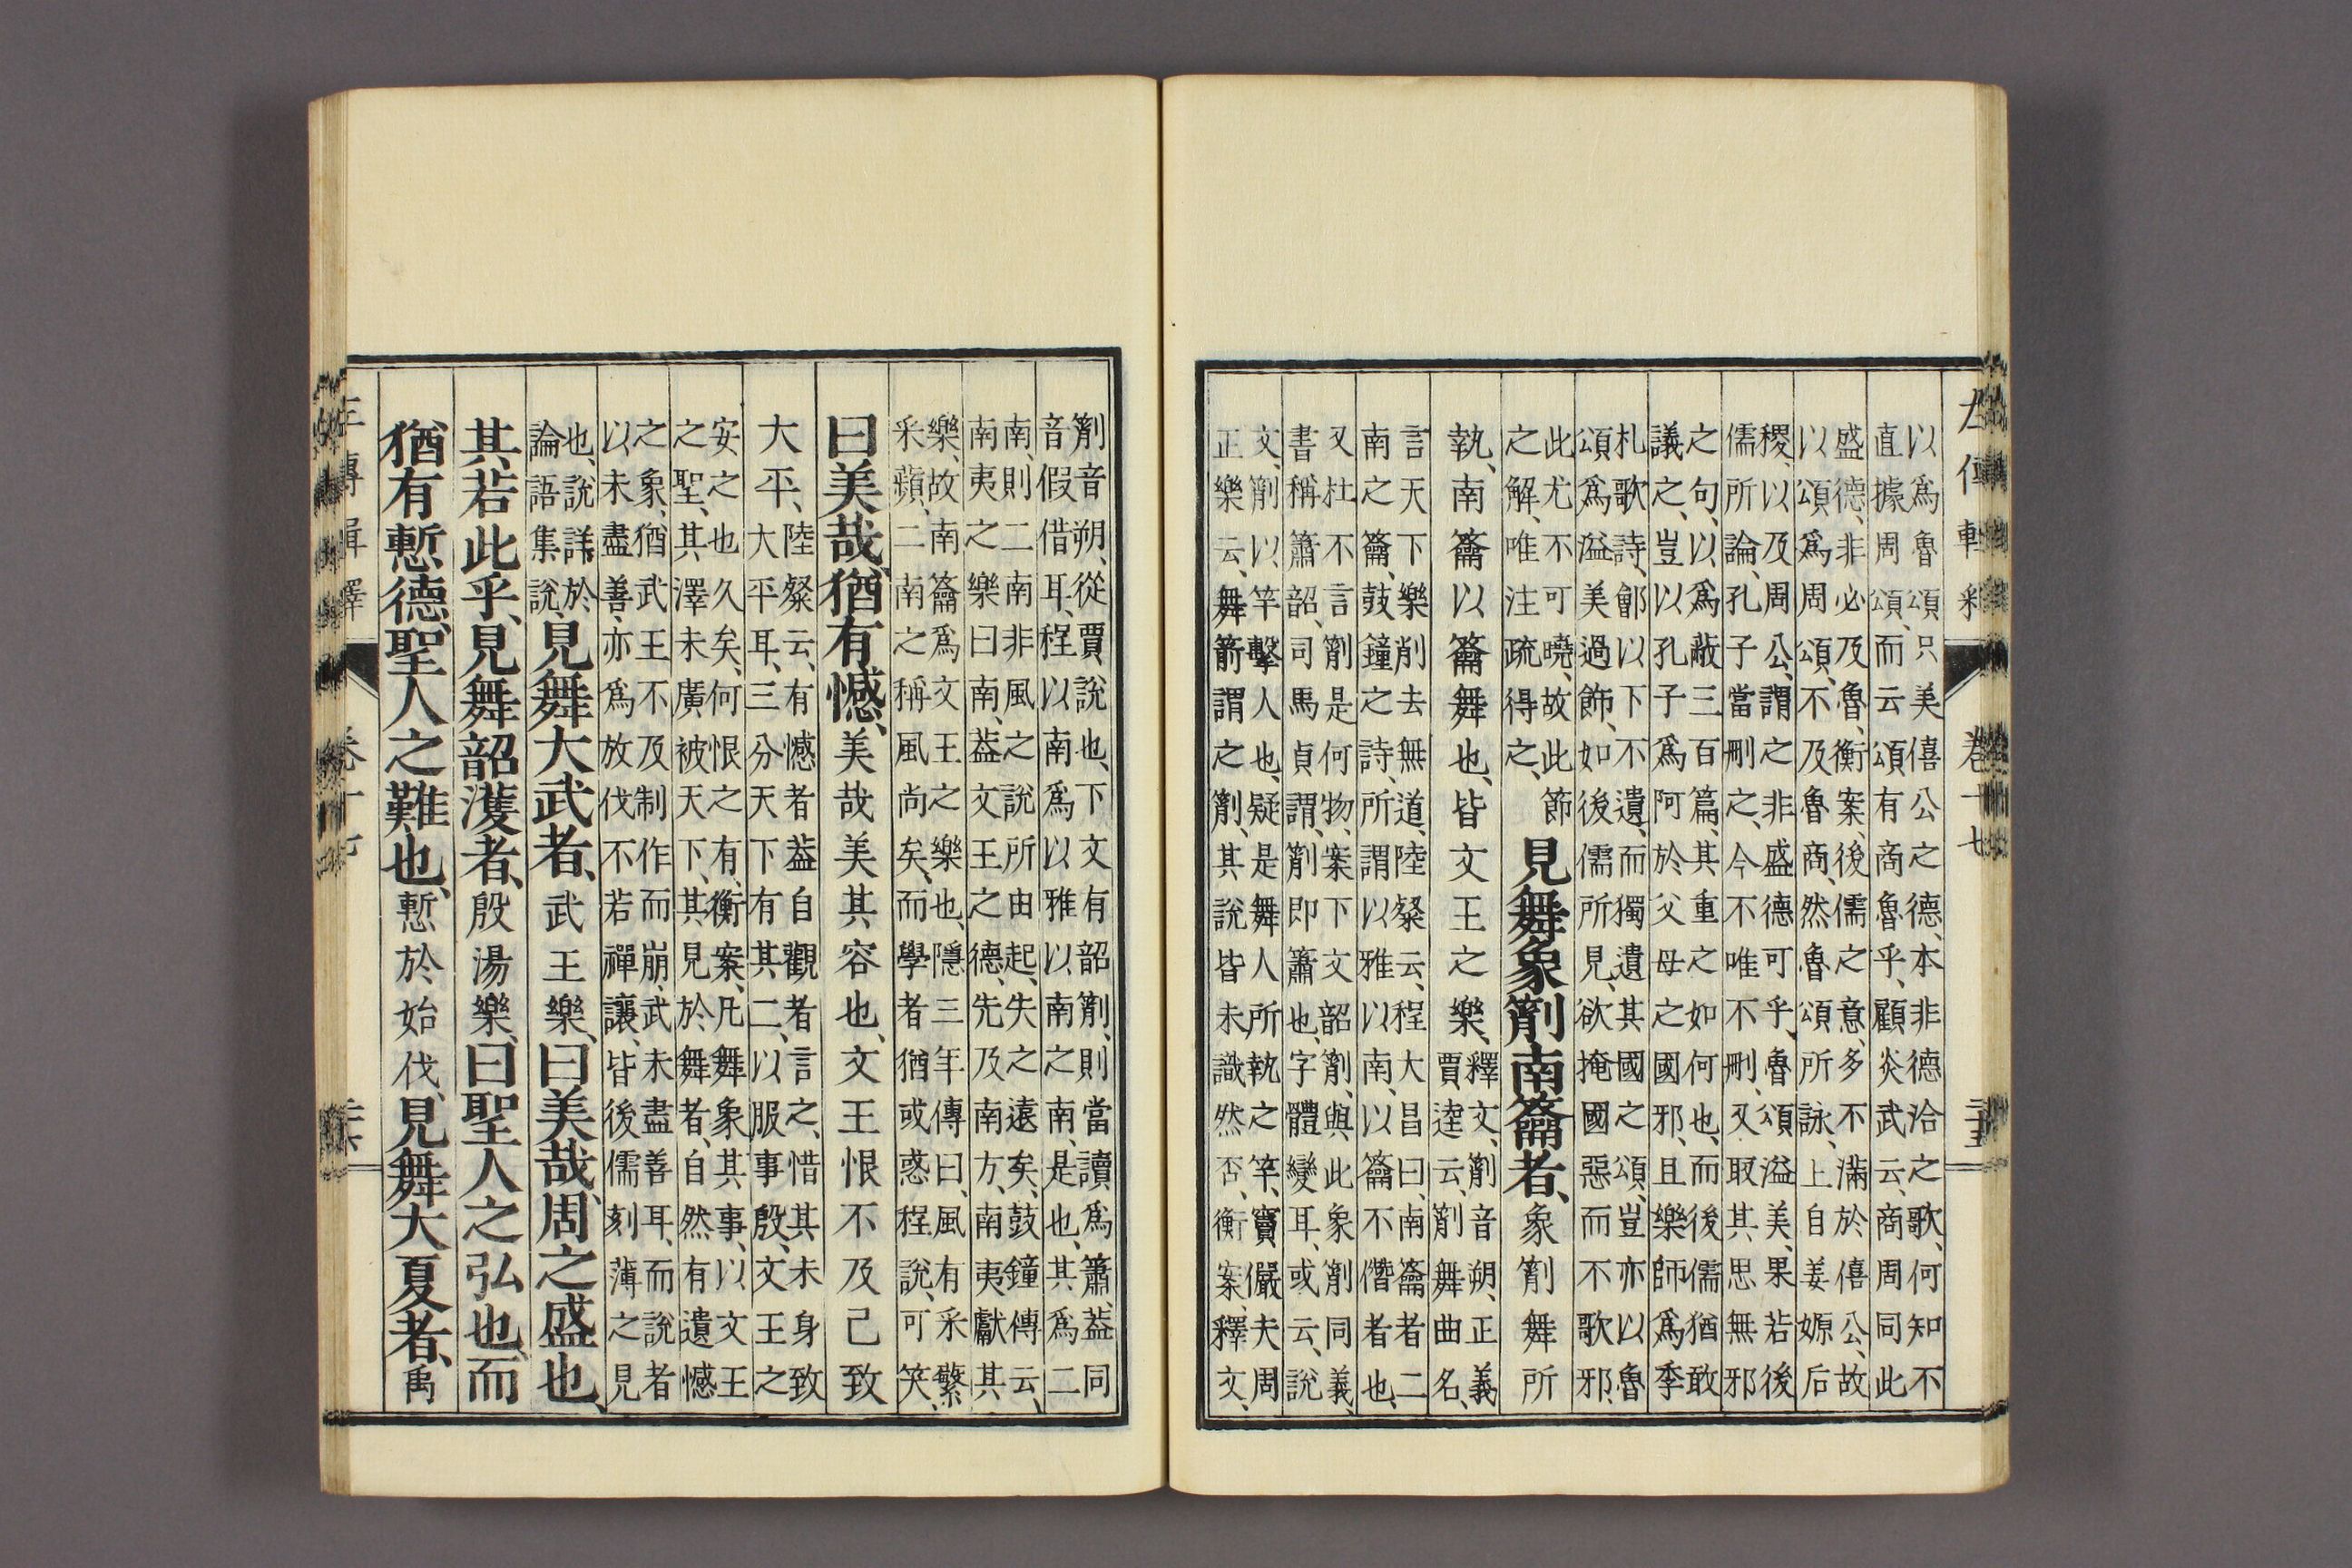 卷十七
以爲魯頌只美僖公之德、本非德洽之歌、何知不
直據周頌、而云頌有商魯乎、顧炎武云、商周同此
盛德、非必及魯、衡案、後儒之意、多不滿於僖公、故
以頌爲周頌、不及魯商、然魯頌所詠、上自姜嫄后
稷、以及周公、謂之非盛德可乎、魯頌溢美、果若後
儒所論、孔子當刪之、今不唯不刪、又取其思無邪
之句、以爲蔽三百篇、其重之如何也、而後儒猶敢
議之、豈以孔子爲阿於父母之國邪、且樂師爲季
札歌詩、鄶以下不遺、而獨遺其國之頌、豈亦以魯
頌爲溢美過飾、如後儒所見、欲掩國惡而不歌邪、
此尤不可曉、故此節
之解、唯注疏得之、
見舞象箾南籥者、象箾舞所
執、南籥以籥舞也、皆文王之樂、
釋文、箾音朔、正義
賈逵云、箾舞曲名、
言天下樂削去無道、陸粲云、程大昌曰、南籥者二
南之籥、鼓鐘之詩、所謂以雅以南、以籥不僭者也、
又杜不言箾是何物、案下文韶箾、與此象箾同義、
書稱簫韶、司馬貞謂、箾即簫也、字體變耳、或云、說
文、箾以竿擊人也、疑是舞人所執之竿、竇儼夫周
正樂云、舞箭謂之箾、其說皆未識然否、衡案、釋文、
箾音朔、從賈說也、下文有韶箾、則當讀爲簫、葢同
音假借耳、程以南爲以雅以南之南、是也、其爲二
南、則二南非風之說所由起、失之遠矣、鼓鐘傳云、
南夷之樂曰南、葢文王之德、先及南方、南夷獻其
樂、故南籥爲文王之樂也、隱三年傳曰、風有采蘩
采蘋、二南之稱風尚矣、而學者猶或惑程說、可笑、
曰美哉、猶有憾、美哉美其容也、文王恨不及己致
大平、
陸粲云、有憾者葢自觀者言之、惜其未身致
大平耳、三分天下有其二、以服事殷、文王之
安之也久矣、何恨之有、衡案、凡舞象其事、以文王
之聖、其澤未廣被天下、其見於舞者、自然有遺憾
之象、猶武王不及制作而崩、武未盡善耳、而說者
以未盡善、亦爲放伐不若禪讓、皆後儒刻薄之見
也、說詳於
論語集說、
見舞大武者、武王樂、曰美哉、周之盛也、
其若此乎、見舞韶濩者、殷湯樂、曰聖人之弘也、而
猶有慙德、聖人之難也、慙於始伐、見舞大夏者、禹